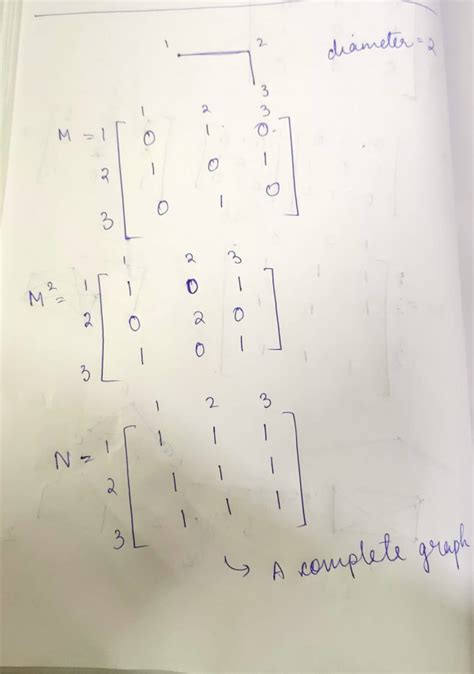 1 2 diameter = 2
3
1 2 3
M = 1 0 1 0
2 1 0 1
3 0 1 0
1 2 3
M² = 1 1 0 1
2 0 2 0
3 1 0 1
1 2 3
N = 1 1 1 1
2 1 1 1
3 1 1 1
↳ A complete graph